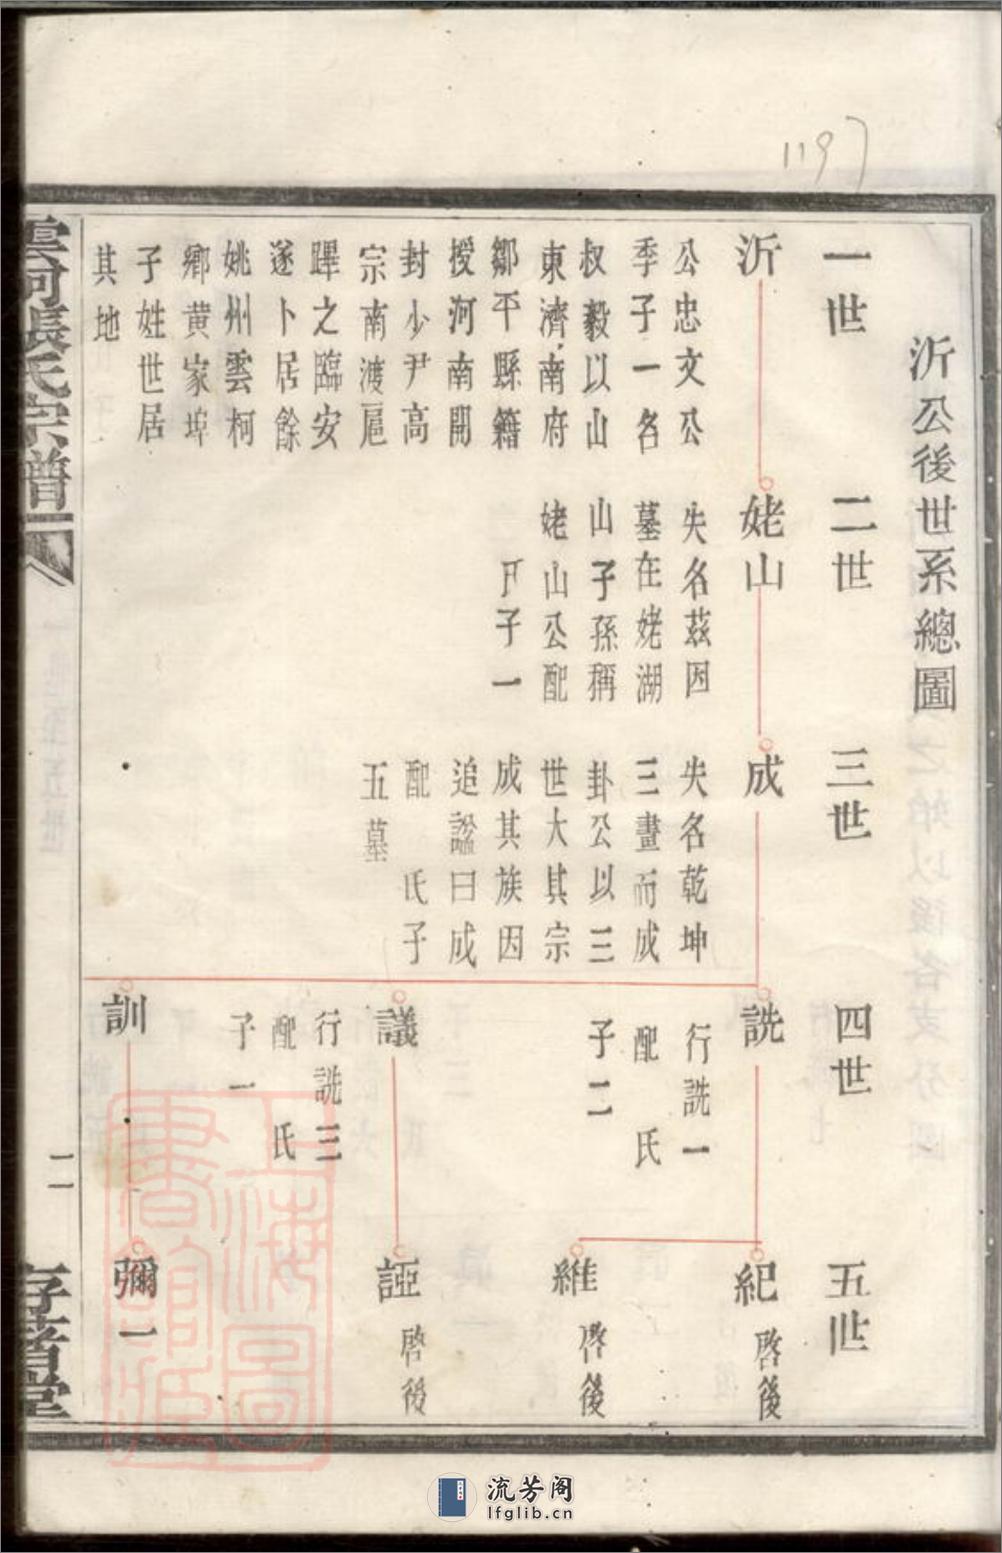 1197
沂公後世系總圖
一世
二世
三世
四世
五世
沂
公忠文公
季子一名
叔毅以山
東濟南府
鄒平縣籍
授河南開
封少尹高
宗南渡扈
蹕之臨安
遂卜居餘
姚州雲柯
鄉黃家埠
子姓世居
其地
姥山
失名茲因
墓在姥湖
山子孫稱
姥山公配
氏子一
成
失名乾坤
三畫而成
卦公以三
世大其宗
成其族因
追諡曰成
配 氏子
五墓
詵
行詵一
配 氏
子二
議
行詵三
配 氏
子一
訓
紀 啓後
維 啓後
誣 啓後
彌一
雲柯張氏宗譜
二
存著堂
上海圖書館藏
流芳阁
lfglib.cn